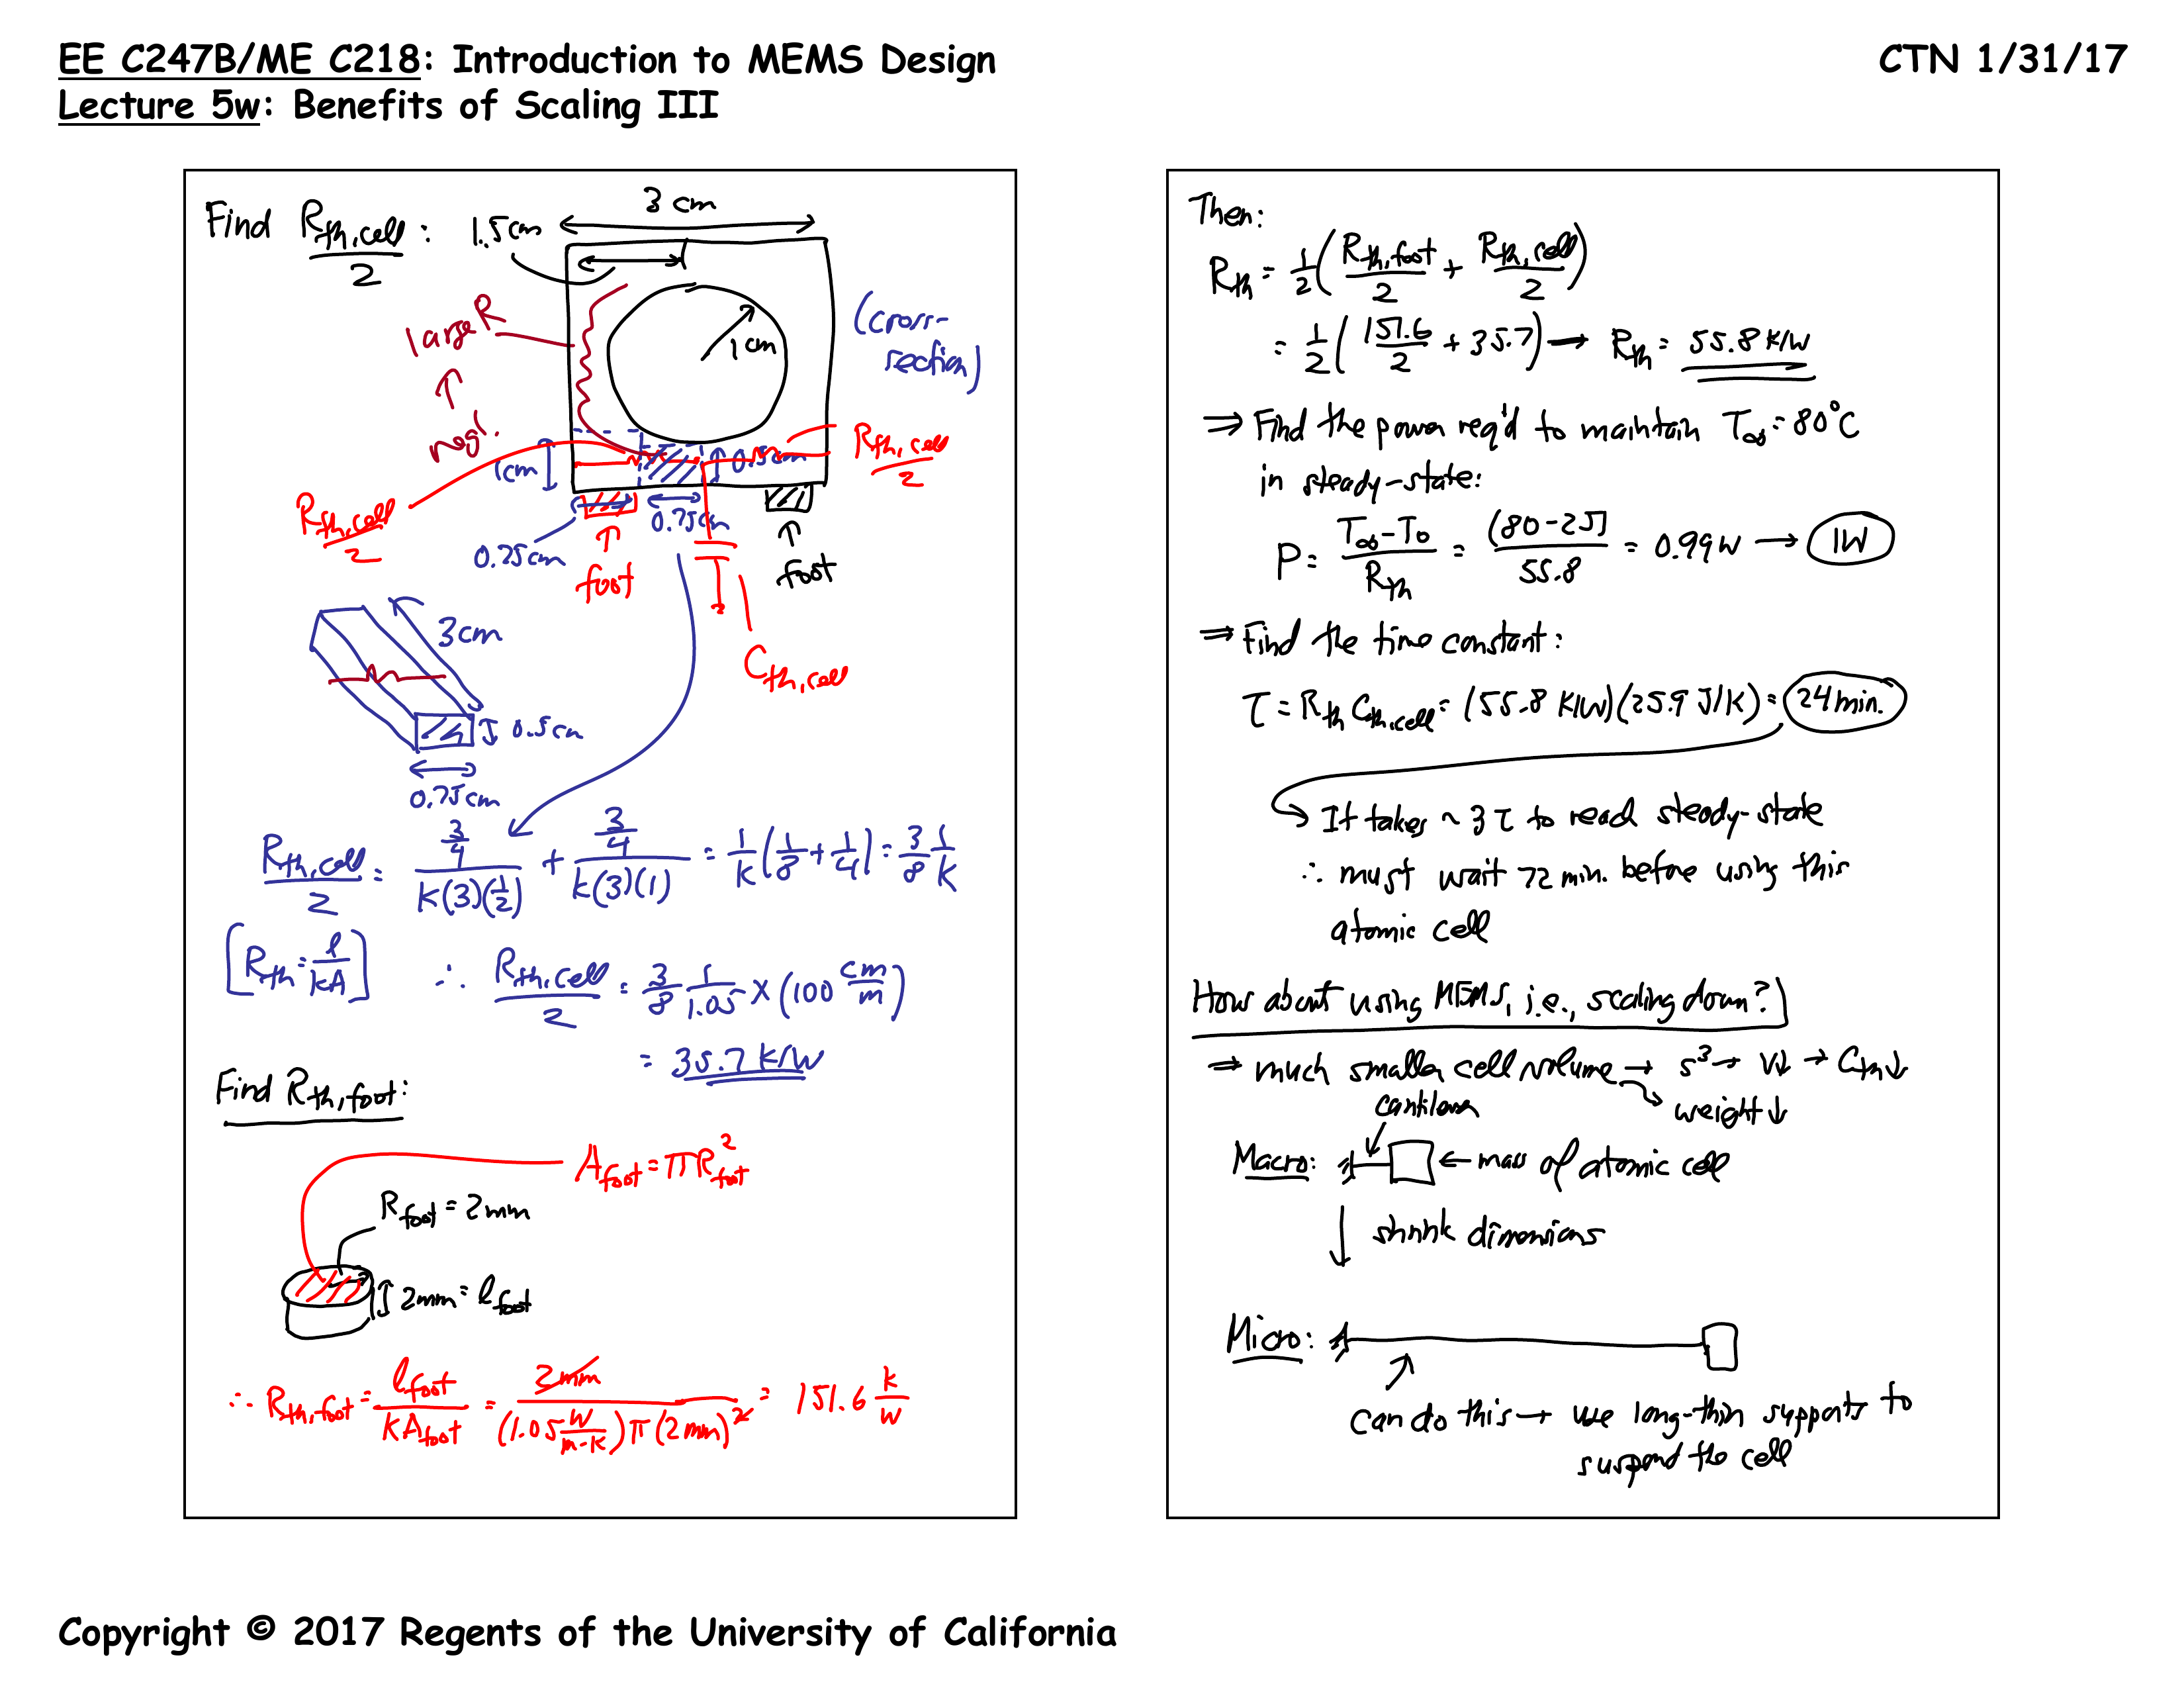 EE C247B/ME C218: Introduction to MEMS Design
CTN 1/31/17
Lecture 5w: Benefits of Scaling III
Find R_th,cell/2 :
3 cm
1.5cm
large R
negl.
1cm
(cross-section)
R_th,cell/2
1cm
0.5cm
R_th,cell/2
0.75cm
0.75cm
foot
foot
C_th,cell
3cm
0.5cm
0.75cm
R_th,cell/2 = (3/4)/(k(3)(1/2)) + (3/4)/(k(3)(1)) = 1/k (1/8 + 1/4) = 3/8 1/k
[R_th = l/kA] ∴ R_th,cell/2 = 3/8 1/1.05 × (100 cm/m)
= 35.7 K/W
Find R_th,foot:
A_foot = πR²_foot
R_foot = 2mm
2mm = l_foot
∴ R_th,foot = l_foot/(kA_foot) = 2mm/((1.05 W/m-K)π(2mm)²) = 151.6 K/W
Then:
R_th = 1/2 (R_th,foot/2 + R_th,cell/2)
= 1/2 (151.6/2 + 35.7) → R_th = 55.8 K/W
⇒ Find the power req'd to maintain T_∞ = 80°C
in steady-state:
P = (T_∞ - T_0)/R_th = (80-25)/55.8 = 0.99W → 1W
⇒ Find the time constant:
τ = R_th C_th,cell = (55.8 K/W)(25.9 J/K) = 24 min.
It takes ~ 3τ to read steady-state
∴ must wait 72 min. before using this
atomic cell
How about using MEMS, i.e., scaling down?
⇒ much smaller cell volume → s³ → V↓ → C_th↓
weight↓
cantilever
Macro: ← mass of atomic cell
↓ shrink dimensions
Micro:
can do this → use long-thin supports to
suspend the cell
Copyright © 2017 Regents of the University of California